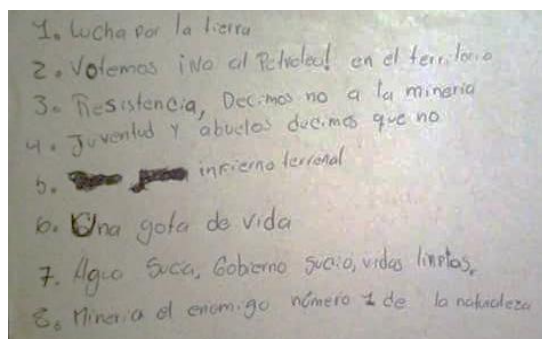 1. Lucha por la tierra
2. Votemos ¡No al Petroleo! en el territorio
3. Resistencia, Decimos no a la mineria
4. Juventud y abuelos decimos que no
5. infierno terrenal
6. Una gota de vida
7. Agua Sucia, Gobierno sucio, vidas limpias.
8. Mineria el enemigo número 1 de la naturaleza